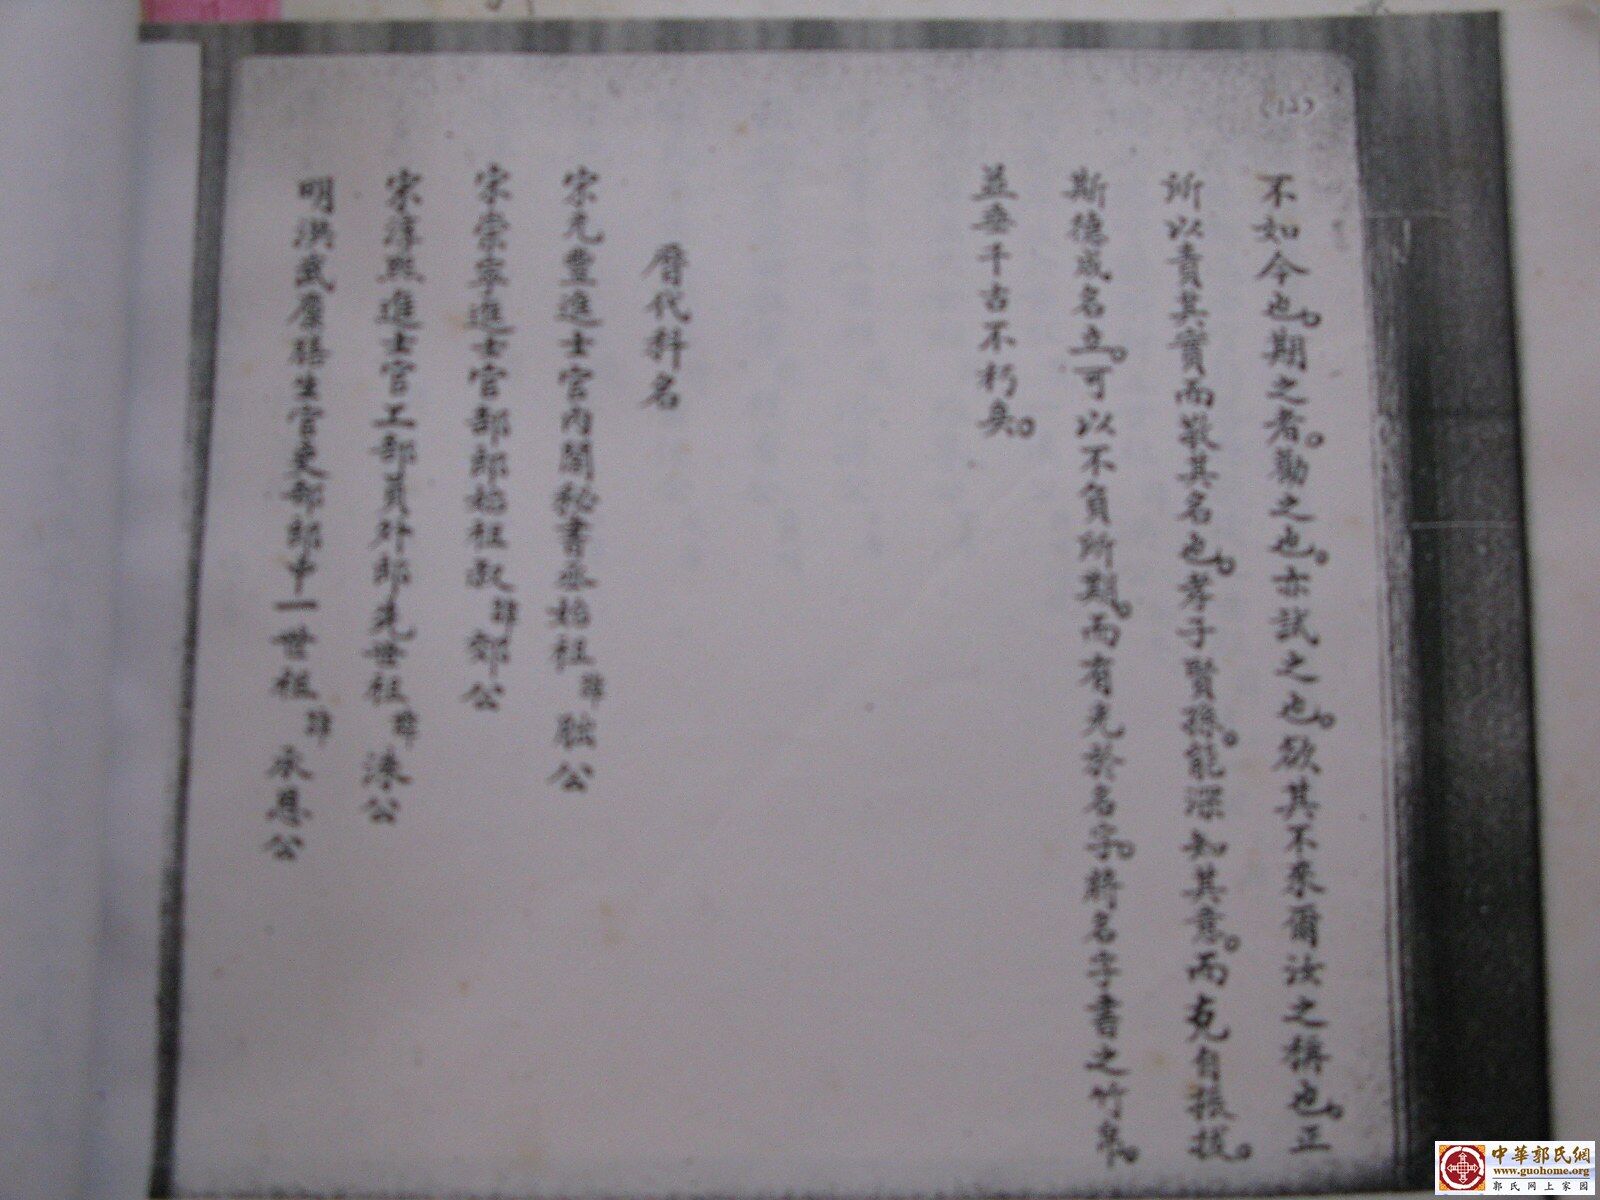 (12)
不如今也。期之者。勸之也。亦試之也。欲其不來爾汝之稱也。正
所以責其實而敬其名也。孝子賢孫。能深知其意。而克自振拔。
斯德成名立。可以不負所期。而有光於名字。將名字書之竹帛。
並垂千古不朽矣。
曆代科名
宋元豊進士官內閣秘書丞始祖諱聉公
宋崇寧進士官部郎始祖叔諱郊公
宋淳熙進士官工部員外郎先世祖諱洙公
明洪武廩膳生官吏部郎中一世祖諱承恩公
中華郭氏網
www.guohome.org
郭氏网上家园